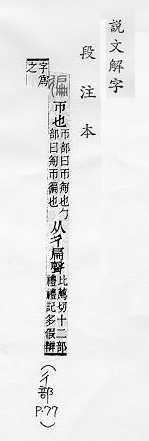 說文解字
段注本
徧
帀也
帀部曰帀㔩也勹
部曰㔩帀徧也
从彳扁聲
比薦切十二部
禮禮記多假辯
字爲
之
(彳部
P.77)